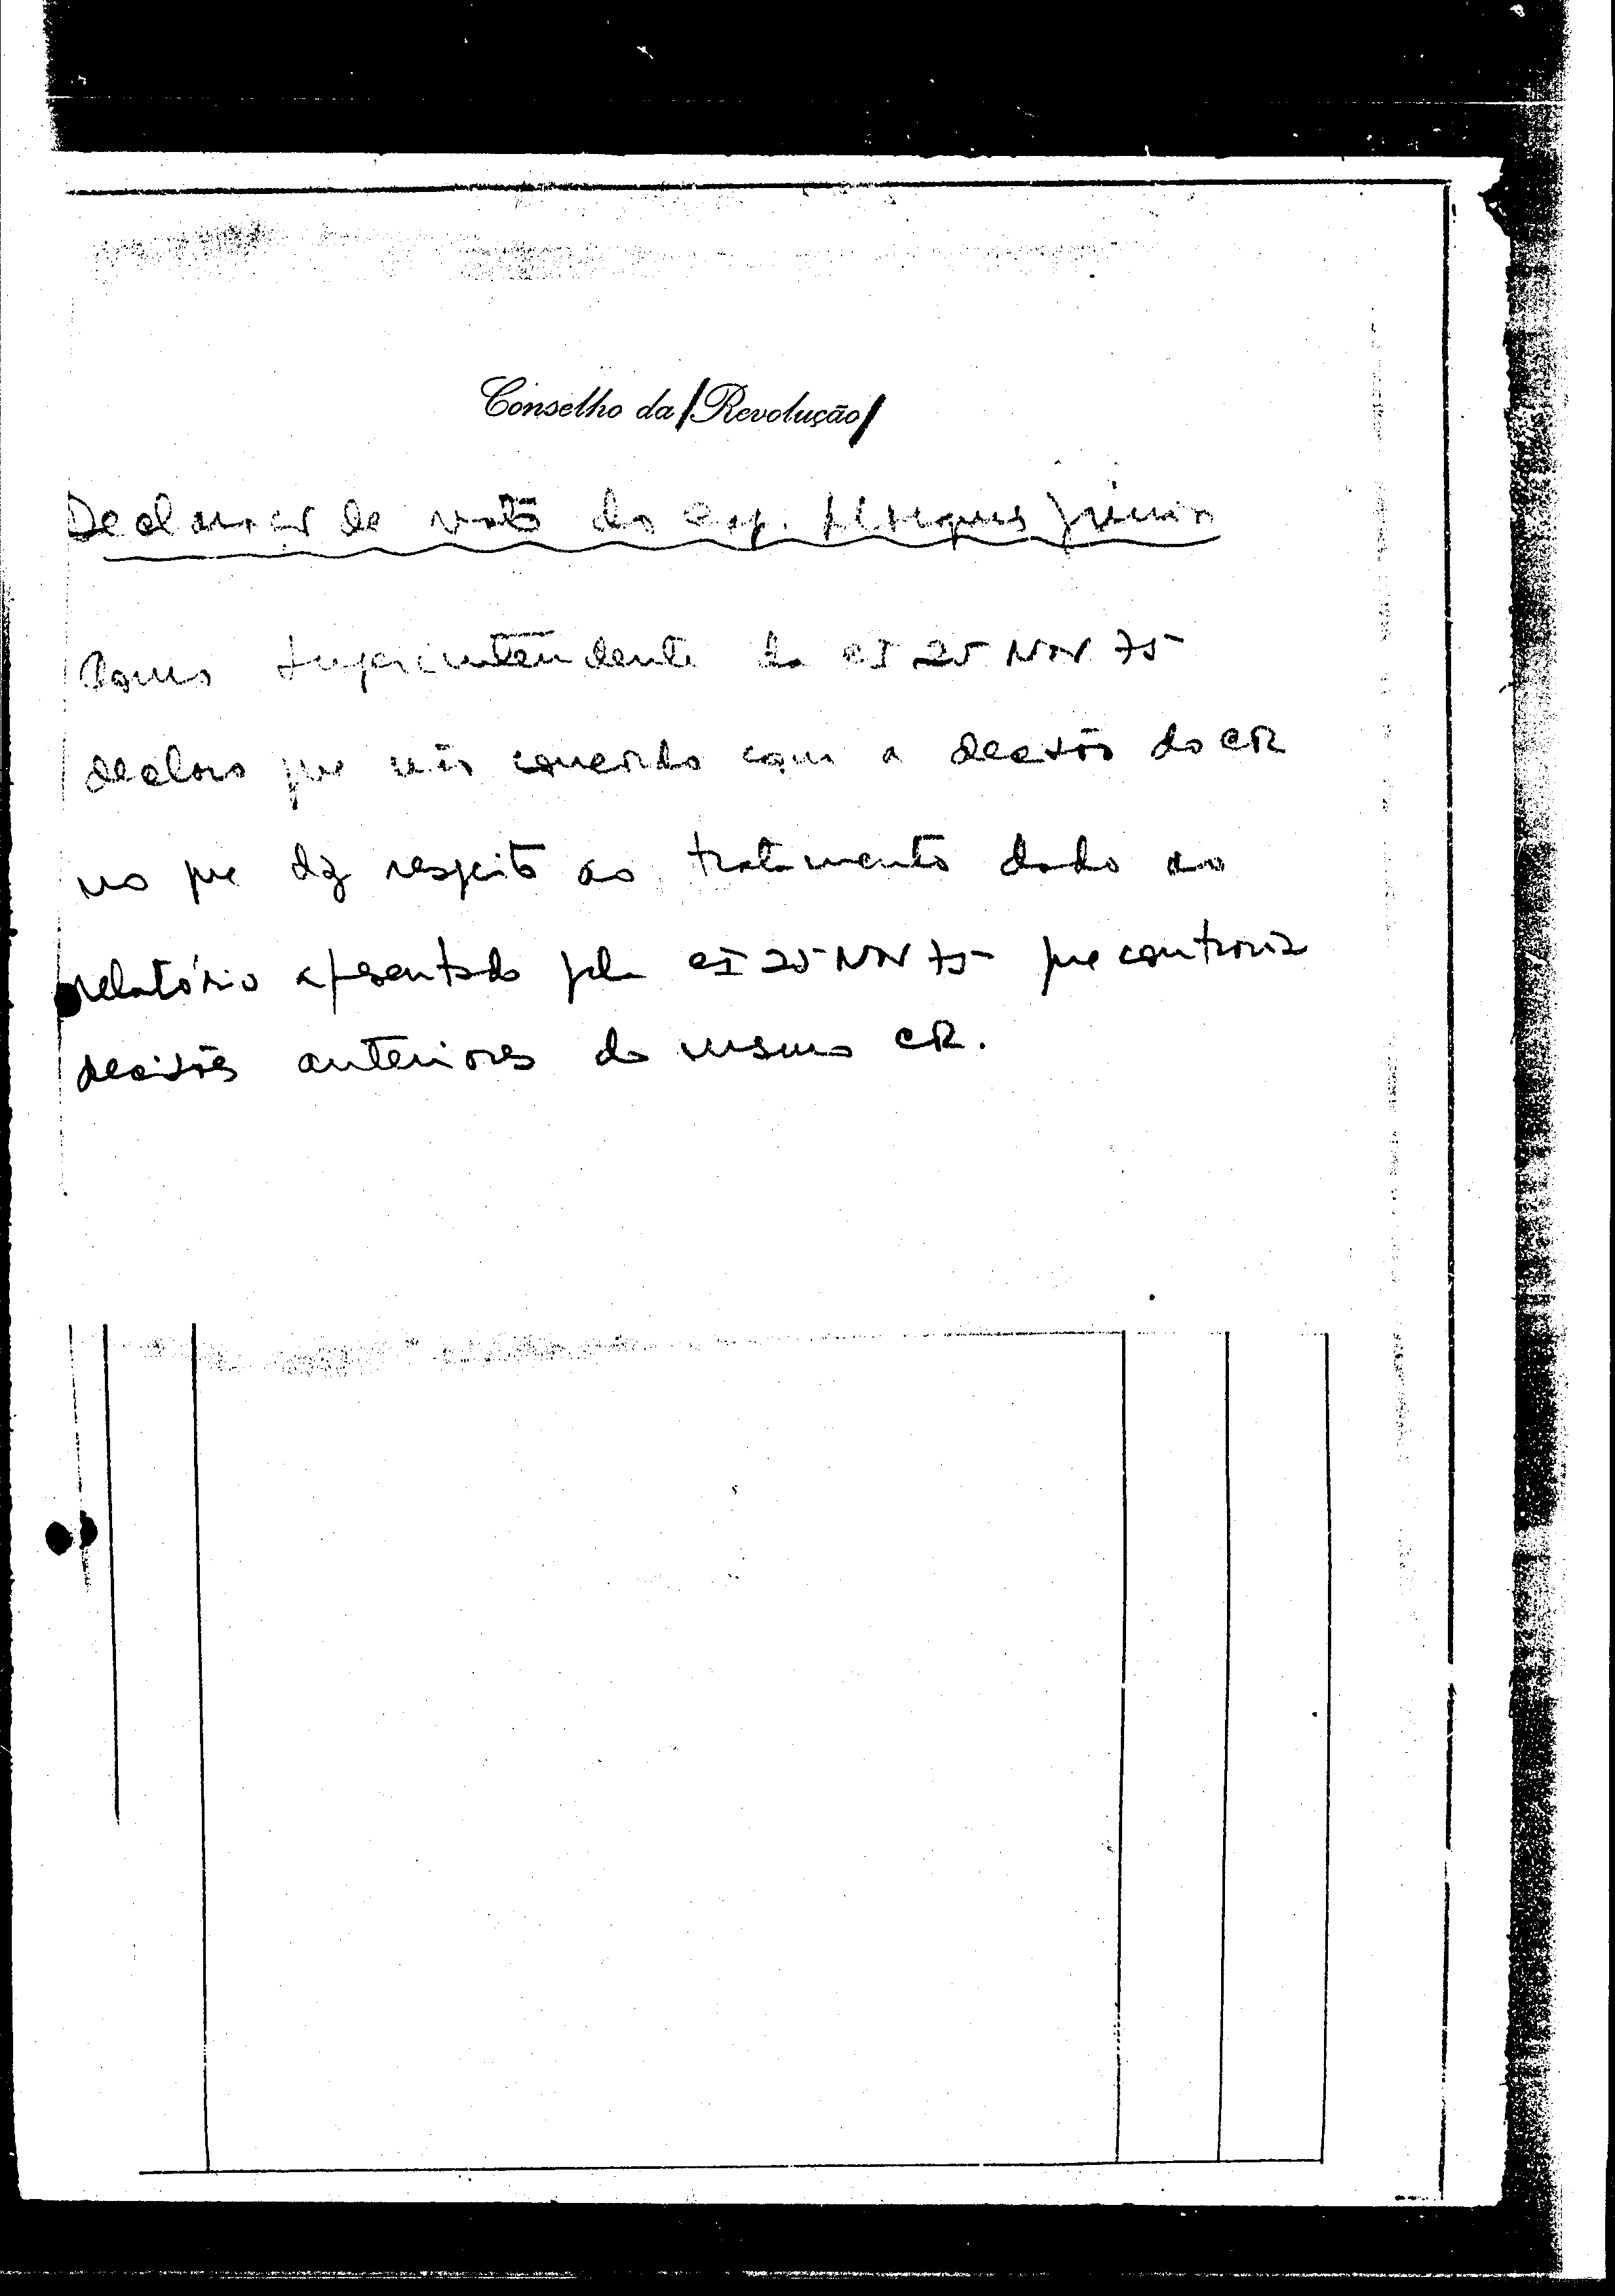 Conselho da Revolução
Declaração de voto do cap. Marques Júnior
Como superintendente da CI 25 NOV 75
declaro que não concordo com a decisão do CR
no que diz respeito ao tratamento dado ao
relatório apresentado pela CI 25 NOV 75 que contraria
decisões anteriores do mesmo CR.